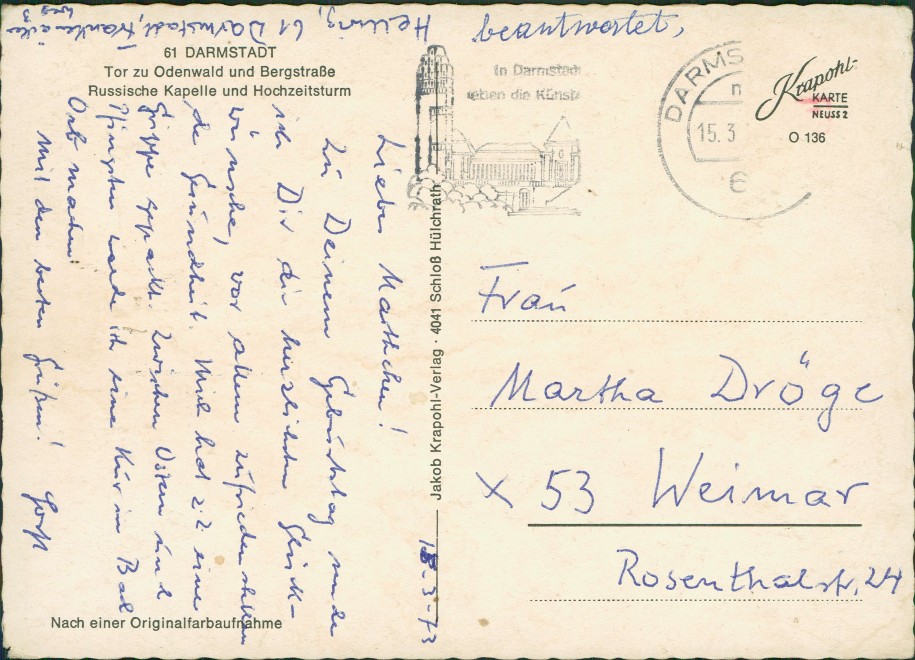 Hellwig, 61 Darmstadt, Frankenallee
beantwortet,
61 DARMSTADT
Tor zu Odenwald und Bergstraße
Russische Kapelle und Hochzeitsturm
In Darmstadt
leben die Künste
DARMS
15.3
6
Krapohl-
KARTE
NEUSS 2
O 136
Liebes Marthchen!
Zu Deinem Geburtstag sende
ich Dir die herzlichsten Glück-
wünsche, vor allem zufriedenstellen
de Gesundheit. Mich hat z.Z. eine
Grippe gepackt. Zwischen Ostern und
Pfingsten werde ich eine Kur in Bad
Orb machen.
Mit den besten Grüßen!
18.3.73
Jakob Krapohl-Verlag · 4041 Schloß Hülchrath
Frau
Martha Dröge
X 53 Weimar
Rosenthalstr. 24
Nach einer Originalfarbaufnahme